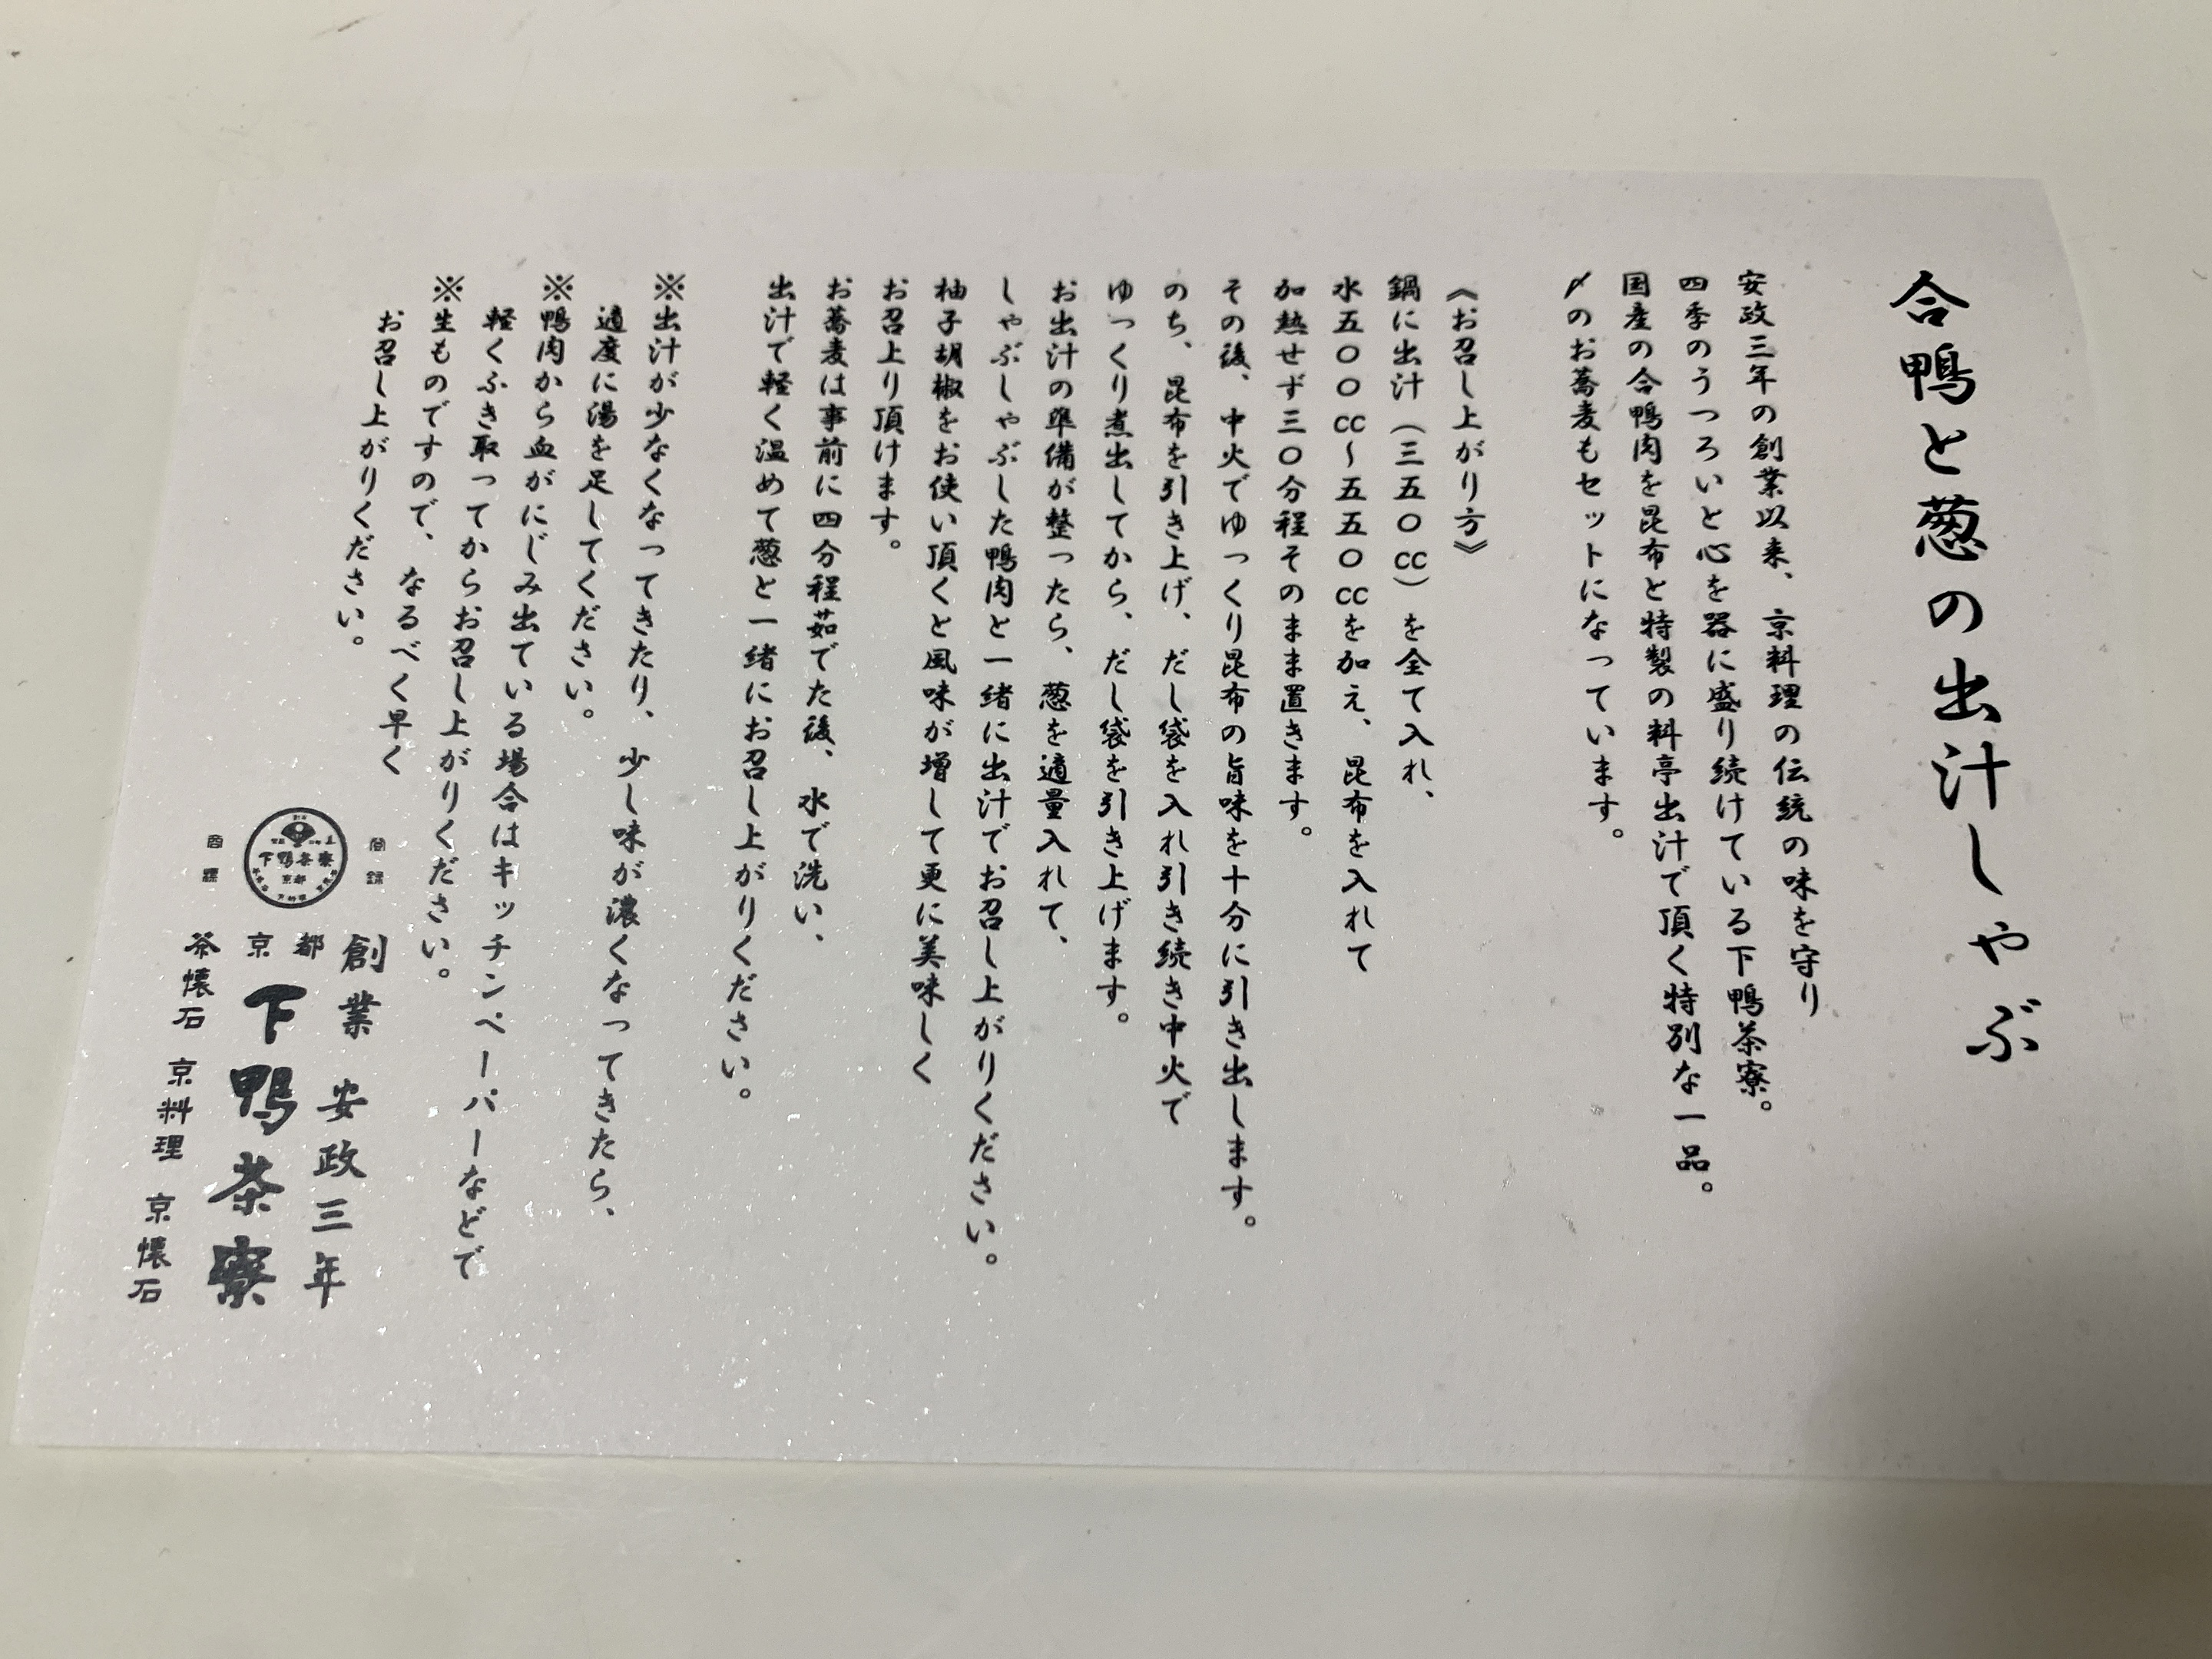 合鴨と葱の出汁しゃぶ
安政三年の創業以来、京料理の伝統の味を守り
四季のうつろいと心を器に盛り続けている下鴨茶寮。
国産の合鴨肉を昆布と特製の料亭出汁で頂く特別な一品。
〆のお蕎麦もセットになっています。
《お召し上がり方》
鍋に出汁（三五〇cc）を全て入れ、
水五〇〇cc～五五〇ccを加え、昆布を入れて
加熱せず三〇分程そのまま置きます。
その後、中火でゆっくり昆布の旨味を十分に引き出します。
のち、昆布を引き上げ、だし袋を入れ引き続き中火で
ゆっくり煮出してから、だし袋を引き上げます。
お出汁の準備が整ったら、葱を適量入れて、
しゃぶしゃぶした鴨肉と一緒に出汁でお召し上がりください。
柚子胡椒をお使い頂くと風味が増して更に美味しく
お召上り頂けます。
お蕎麦は事前に四分程茹でた後、水で洗い、
出汁で軽く温めて葱と一緒にお召し上がりください。
※出汁が少なくなってきたり、少し味が濃くなってきたら、
適度に湯を足してください。
※鴨肉から血がにじみ出ている場合はキッチンペーパーなどで
軽くふき取ってからお召し上がりください。
※生ものですので、なるべく早く
お召し上がりください。
創業 安政三年
京都 下鴨茶寮
茶懐石 京料理 京懐石
下鴨茶寮
京都